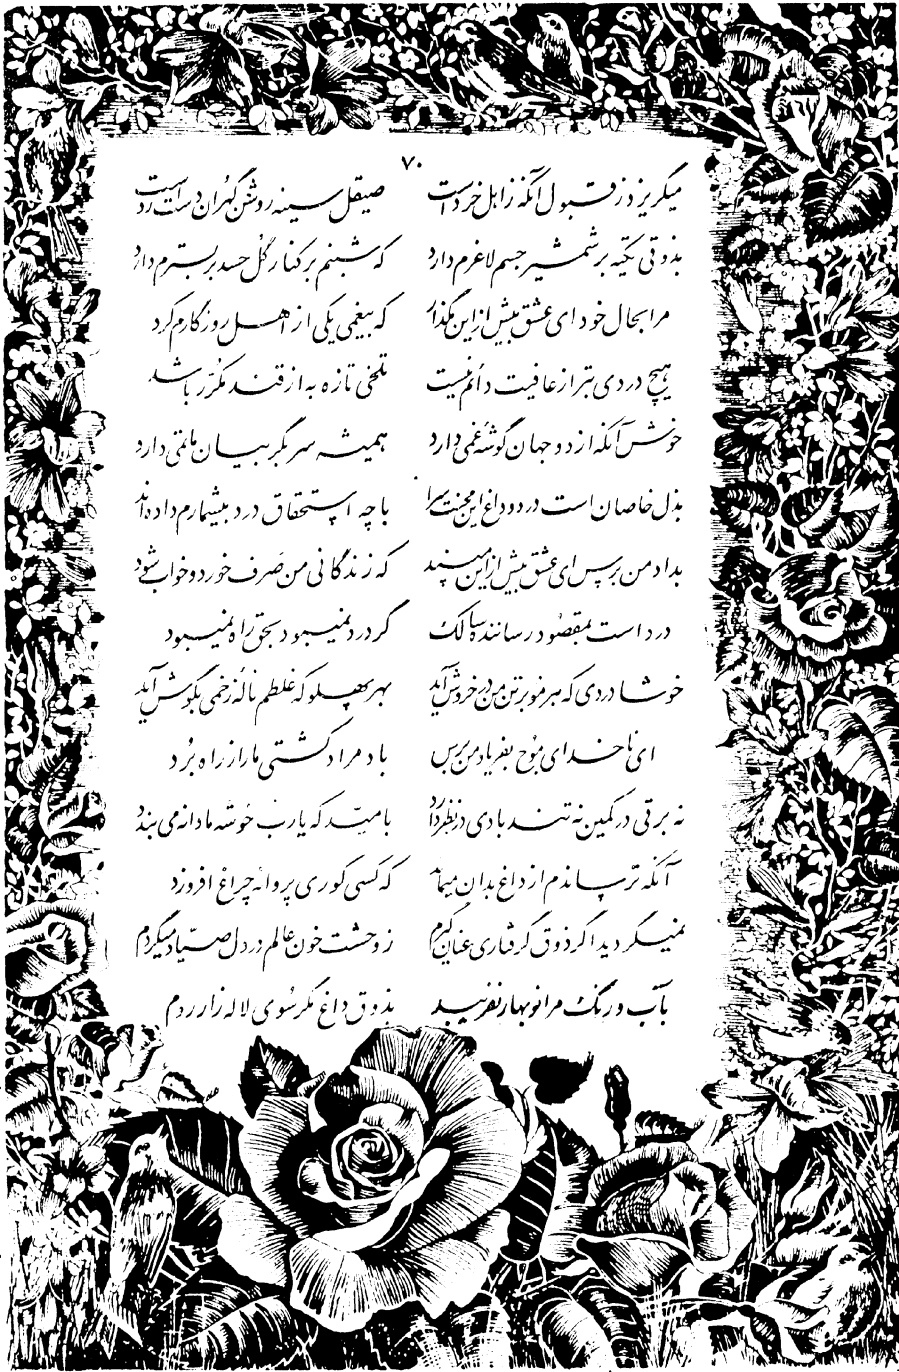 ۷۰
میگریزد ز قبول آنکه ز اهل خرد است صیقل سینه روشن گهران دست رد است
بذوقی تکیه بر شمشیر جسم لاغرم دارد که شبنم بر کنار گل حسد بر بسترم دارد
مرا بحال خود ای عشق بیش ازین مگذار که بیغمی یکی از اهل روزگارم کرد
هیچ دردی بتر از عافیت دائم نیست تلخی تازه به از قند مکرّر باشد
خوش آنکه از دو جهان گوشه غمی دارد همیشه سر بگریبان ماتمی دارد
بذل خاصان است درد و داغ این محنت سرا با چه استحقاق درد بیشمارم داده‌اند
بداد من برس ای عشق بیش ازین مپسند که زندگانی من صرف خورد و خواب شود
درد است بمقصود رساننده سالک گر درد نمیبود بحق راه نمیبود
خوشا دردی که هر مو بر تن من در خروش آید بهر پهلو که غلطم ناله زخمی بگوش آید
ای ناخدای موج بفریاد من برس باد مراد کشتی ما را ز راه برد
نه برقی در کمین نه تند بادی در نظر دارد بامید که یارب خوشه ما دانه می بندد
آنکه ترساندم از داغ بدان میماند که کسی کوری پروانه چراغ افروزد
نمیگردید اگر ذوق گرفتاری عنان گیرم ز وحشت خون عالم در دل صیّاد میکردم
بآب و رنگ مرا نوبهار نفریبد بذوق داغ مگر سوی لاله زار روم